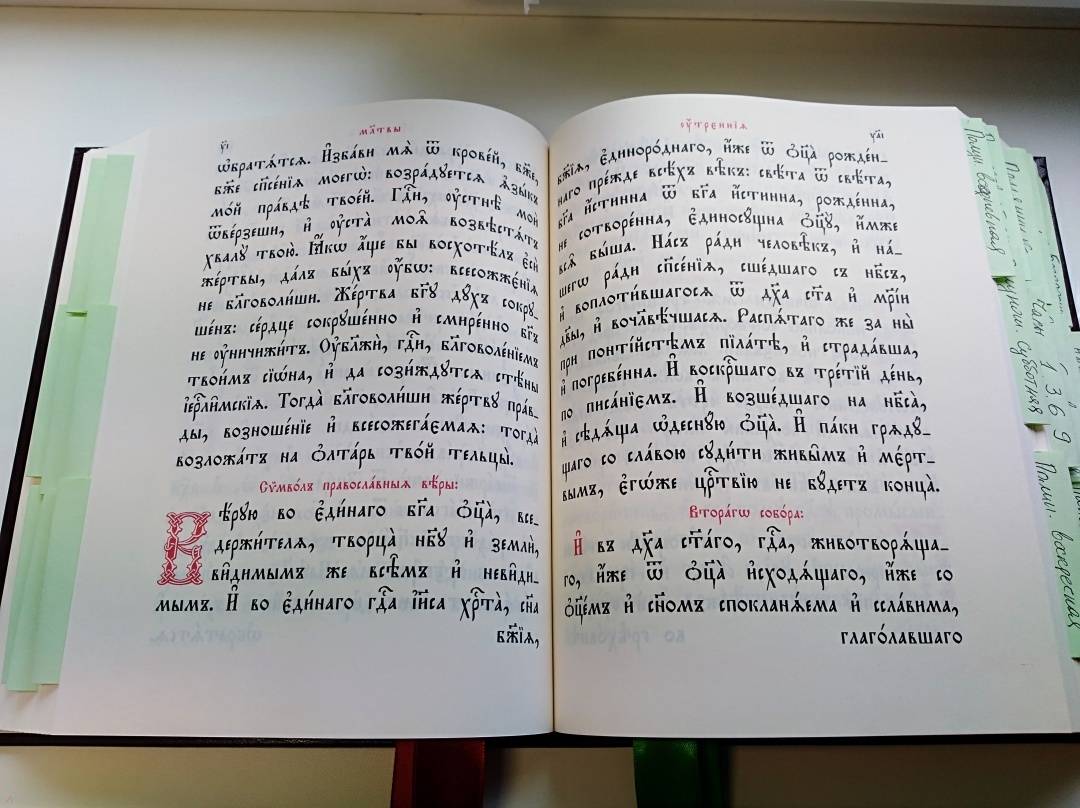 мл҃твы
у҃і
ѡ҆братѧ́тсѧ. И҆зба́ви мѧ̀ ѿ крове́й, бж҃е,
бж҃е спⷭ҇нїѧ моегѡ̀: возра́дꙋетсѧ ѧ҆зы́къ
мо́й пра́вдѣ твое́й. Гдⷭ҇и, ᲂу҆стнѣ̀ мои̑
ѿве́рзеши, и҆ ᲂу҆ста̀ моѧ̑ возвѣстѧ́тъ
хвалꙋ̀ твою̀. Ꙗ҆́кѡ а҆́ще бы восхотѣ́лъ є҆сѝ
же́ртвы, да́лъ бы́хъ ᲂу҆́бѡ: всесожже́нїѧ
не бл҃говоли́ши. Же́ртва бг҃ꙋ дꙋ́хъ сокрꙋ-
ше́нъ: се́рдце сокрꙋше́нно и҆ смире́нно бг҃ъ
не ᲂу҆ничижи́тъ. Оу҆блажѝ, гдⷭ҇и, бл҃говоле́нїемъ
твои́мъ сїѡ́на, и҆ да сози́ждꙋтсѧ стѣ́ны
і҆ерⷭ҇ли̑мскїѧ. Тогда̀ бл҃говоли́ши же́ртвꙋ пра́в-
ды, возноше́нїе и҆ всесожега́ємаѧ: тогда̀
возложа́тъ на ѻ҆лта́рь тво́й тельцы̀.
Сѷмво́лъ правосла́вныѧ вѣ́ры:
Вѣ́рꙋю во є҆ди́наго бг҃а ѻ҆ц҃а̀, все-
держи́телѧ, творца̀ нб҃ꙋ и҆ землѝ,
ви̑димымъ же всѣ̑мъ и҆ неви̑ди-
мымъ. И҆ во є҆ди́наго гдⷭ҇а і҆и҃са хрⷭ҇та̀, сн҃а
бж҃їѧ,
ᲂу҆́треннїѧ
уа҃і
бж҃їѧ, є҆диноро́днаго, и҆́же ѿ ѻ҆ц҃а̀ рожде́н-
наго пре́жде всѣ́хъ вѣ̑къ: свѣ́та ѿ свѣ́та,
бг҃а и҆́стинна ѿ бг҃а и҆́стинна, рожде́нна,
не сотворе́нна, є҆диносꙋ́щна ѻ҆ц҃ꙋ̀, и҆́мже
всѧ̑ бы́ша. На́съ ра́ди человѣ̑къ, и҆ на́-
шегѡ ра́ди спⷭ҇нїѧ, сше́дшаго съ нб҃съ,
и҆ воплоти́вшагосѧ ѿ дх҃а ст҃а и҆ мр҃і́и
дв҃ы, и҆ вочл҃вѣ́чшасѧ. Распѧ́таго же за ны̀
при понті́йстѣмъ пїла́тѣ, и҆ страда́вша,
и҆ погребе́нна. И҆ воскрⷭ҇шаго въ тре́тїй де́нь,
по писа́нїємъ. И҆ возше́дшаго на нб҃са̀,
и҆ сѣдѧ́ща ѡ҆деснꙋ́ю ѻ҆ц҃а̀. И҆ па́ки грѧдꙋ́-
щаго со сла́вою сꙋди́ти живы̑мъ и҆ ме́рт-
вымъ, є҆гѡ́же црⷭ҇твїю не бꙋ́детъ конца̀.
Втора́гѡ собо́ра:
И҆ въ дх҃а ст҃а́го, гдⷭ҇а, животворѧ́ща-
го, и҆́же ѿ ѻ҆ц҃а̀ и҆сходѧ́щаго, и҆́же со
ѻ҆ц҃е́мъ и҆ сн҃омъ спокланѧ́ема и҆ ссла́вима,
глаго́лавшаго
Полун. вседневная
Полун. субботная
Часы 1 3. 6 9
Полун. воскресная